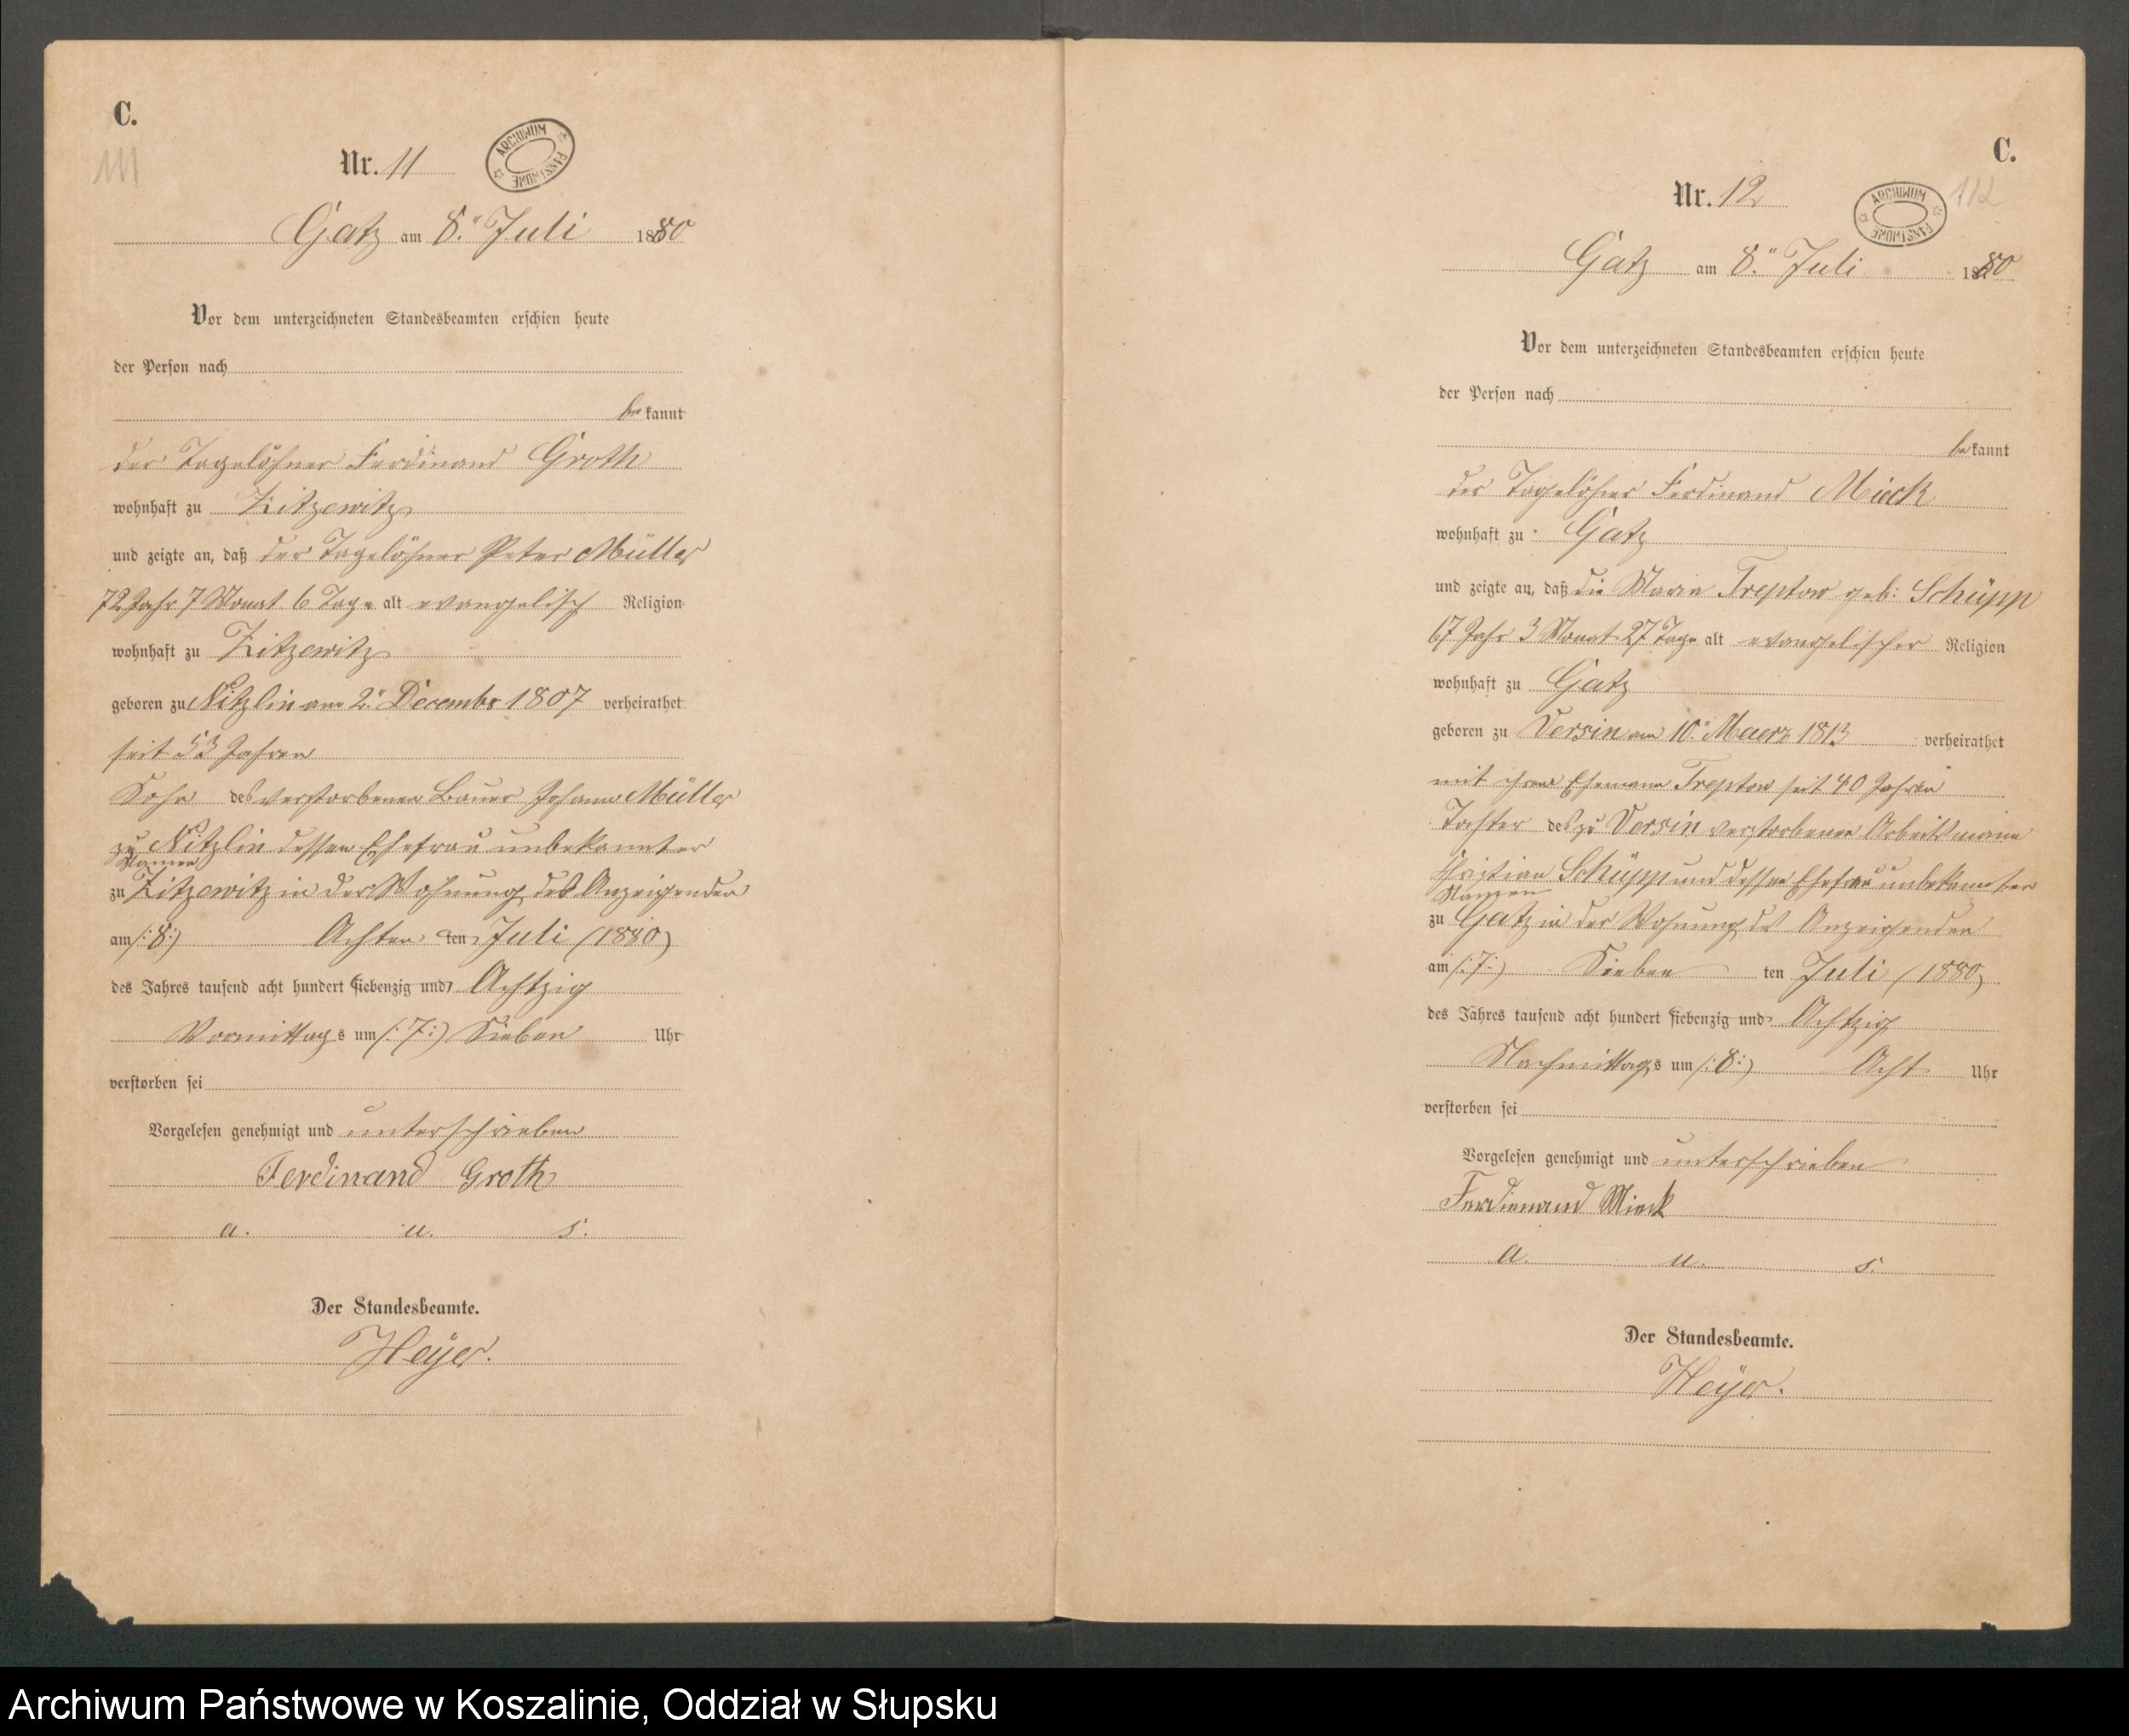 C.
111
Nr. 11
ARCHIWUM PAŃSTWOWE
Gatz am 8. Juli 1880
Vor dem unterzeichneten Standesbeamten erschien heute
der Person nach
bekannt
der Tagelöhner Ferdinand Groth
wohnhaft zu Zitzewitz
und zeigte an, daß der Tagelöhner Peter Müller
72 Jahr 7 Monat 6 Tage alt evangelisch Religion
wohnhaft zu Zitzewitz
geboren zu Nitzlin am 2. Decembr 1807 verheirathet
seit 53 Jahren
Sohn des verstorbenen Bauer Johann Müller
zu Nitzlin dessen Ehefrau unbekannter
Namen
zu Zitzewitz in der Wohnung des Anzeigenden
am /:8:/ Achten ten Juli (1880)
des Jahres tausend acht hundert siebenzig und Achtzig
Vormittags um /:7:/ Sieben Uhr
verstorben sei
Vorgelesen genehmigt und unterschrieben
Ferdinand Groth
a. u. s.
Der Standesbeamte.
Heyer.
C.
112
Nr. 12
ARCHIWUM PAŃSTWOWE
Gatz am 8. Juli 1880
Vor dem unterzeichneten Standesbeamten erschien heute
der Person nach
bekannt
der Tagelöhner Ferdinand Mieck
wohnhaft zu Gatz
und zeigte an, daß die Maria Treptow geb: Schüpp
67 Jahr 3 Monat 27 Tage alt evangelischer Religion
wohnhaft zu Gatz
geboren zu Versin am 10. Maerz 1813 verheirathet
mit ihrem Ehemann Treptow seit 40 Jahren
Tochter des zu Versin verstorbenen Arbeitsmann
Christian Schüpp und dessen Ehefrau unbekannter
Namen
zu Gatz in der Wohnung des Anzeigenden
am /:7:/ Sieben ten Juli (1880)
des Jahres tausend acht hundert siebenzig und Achtzig
Nachmittags um /:8:/ Acht Uhr
verstorben sei
Vorgelesen genehmigt und unterschrieben
Ferdienand Mieck
a. u. s.
Der Standesbeamte.
Heyer.
Archiwum Państwowe w Koszalinie, Oddział w Słupsku